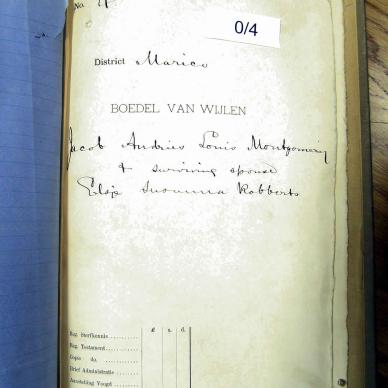 No.
0/4
District Marico
BOEDEL VAN WIJLEN
Jacob Andries Louis Montgomery
& surviving spouse
Elsje Susanna Robberts
£ s. d.
Reg. Sterfkennis
Reg. Testament
Copie do.
Brief Administratie
Aanstelling Voogd